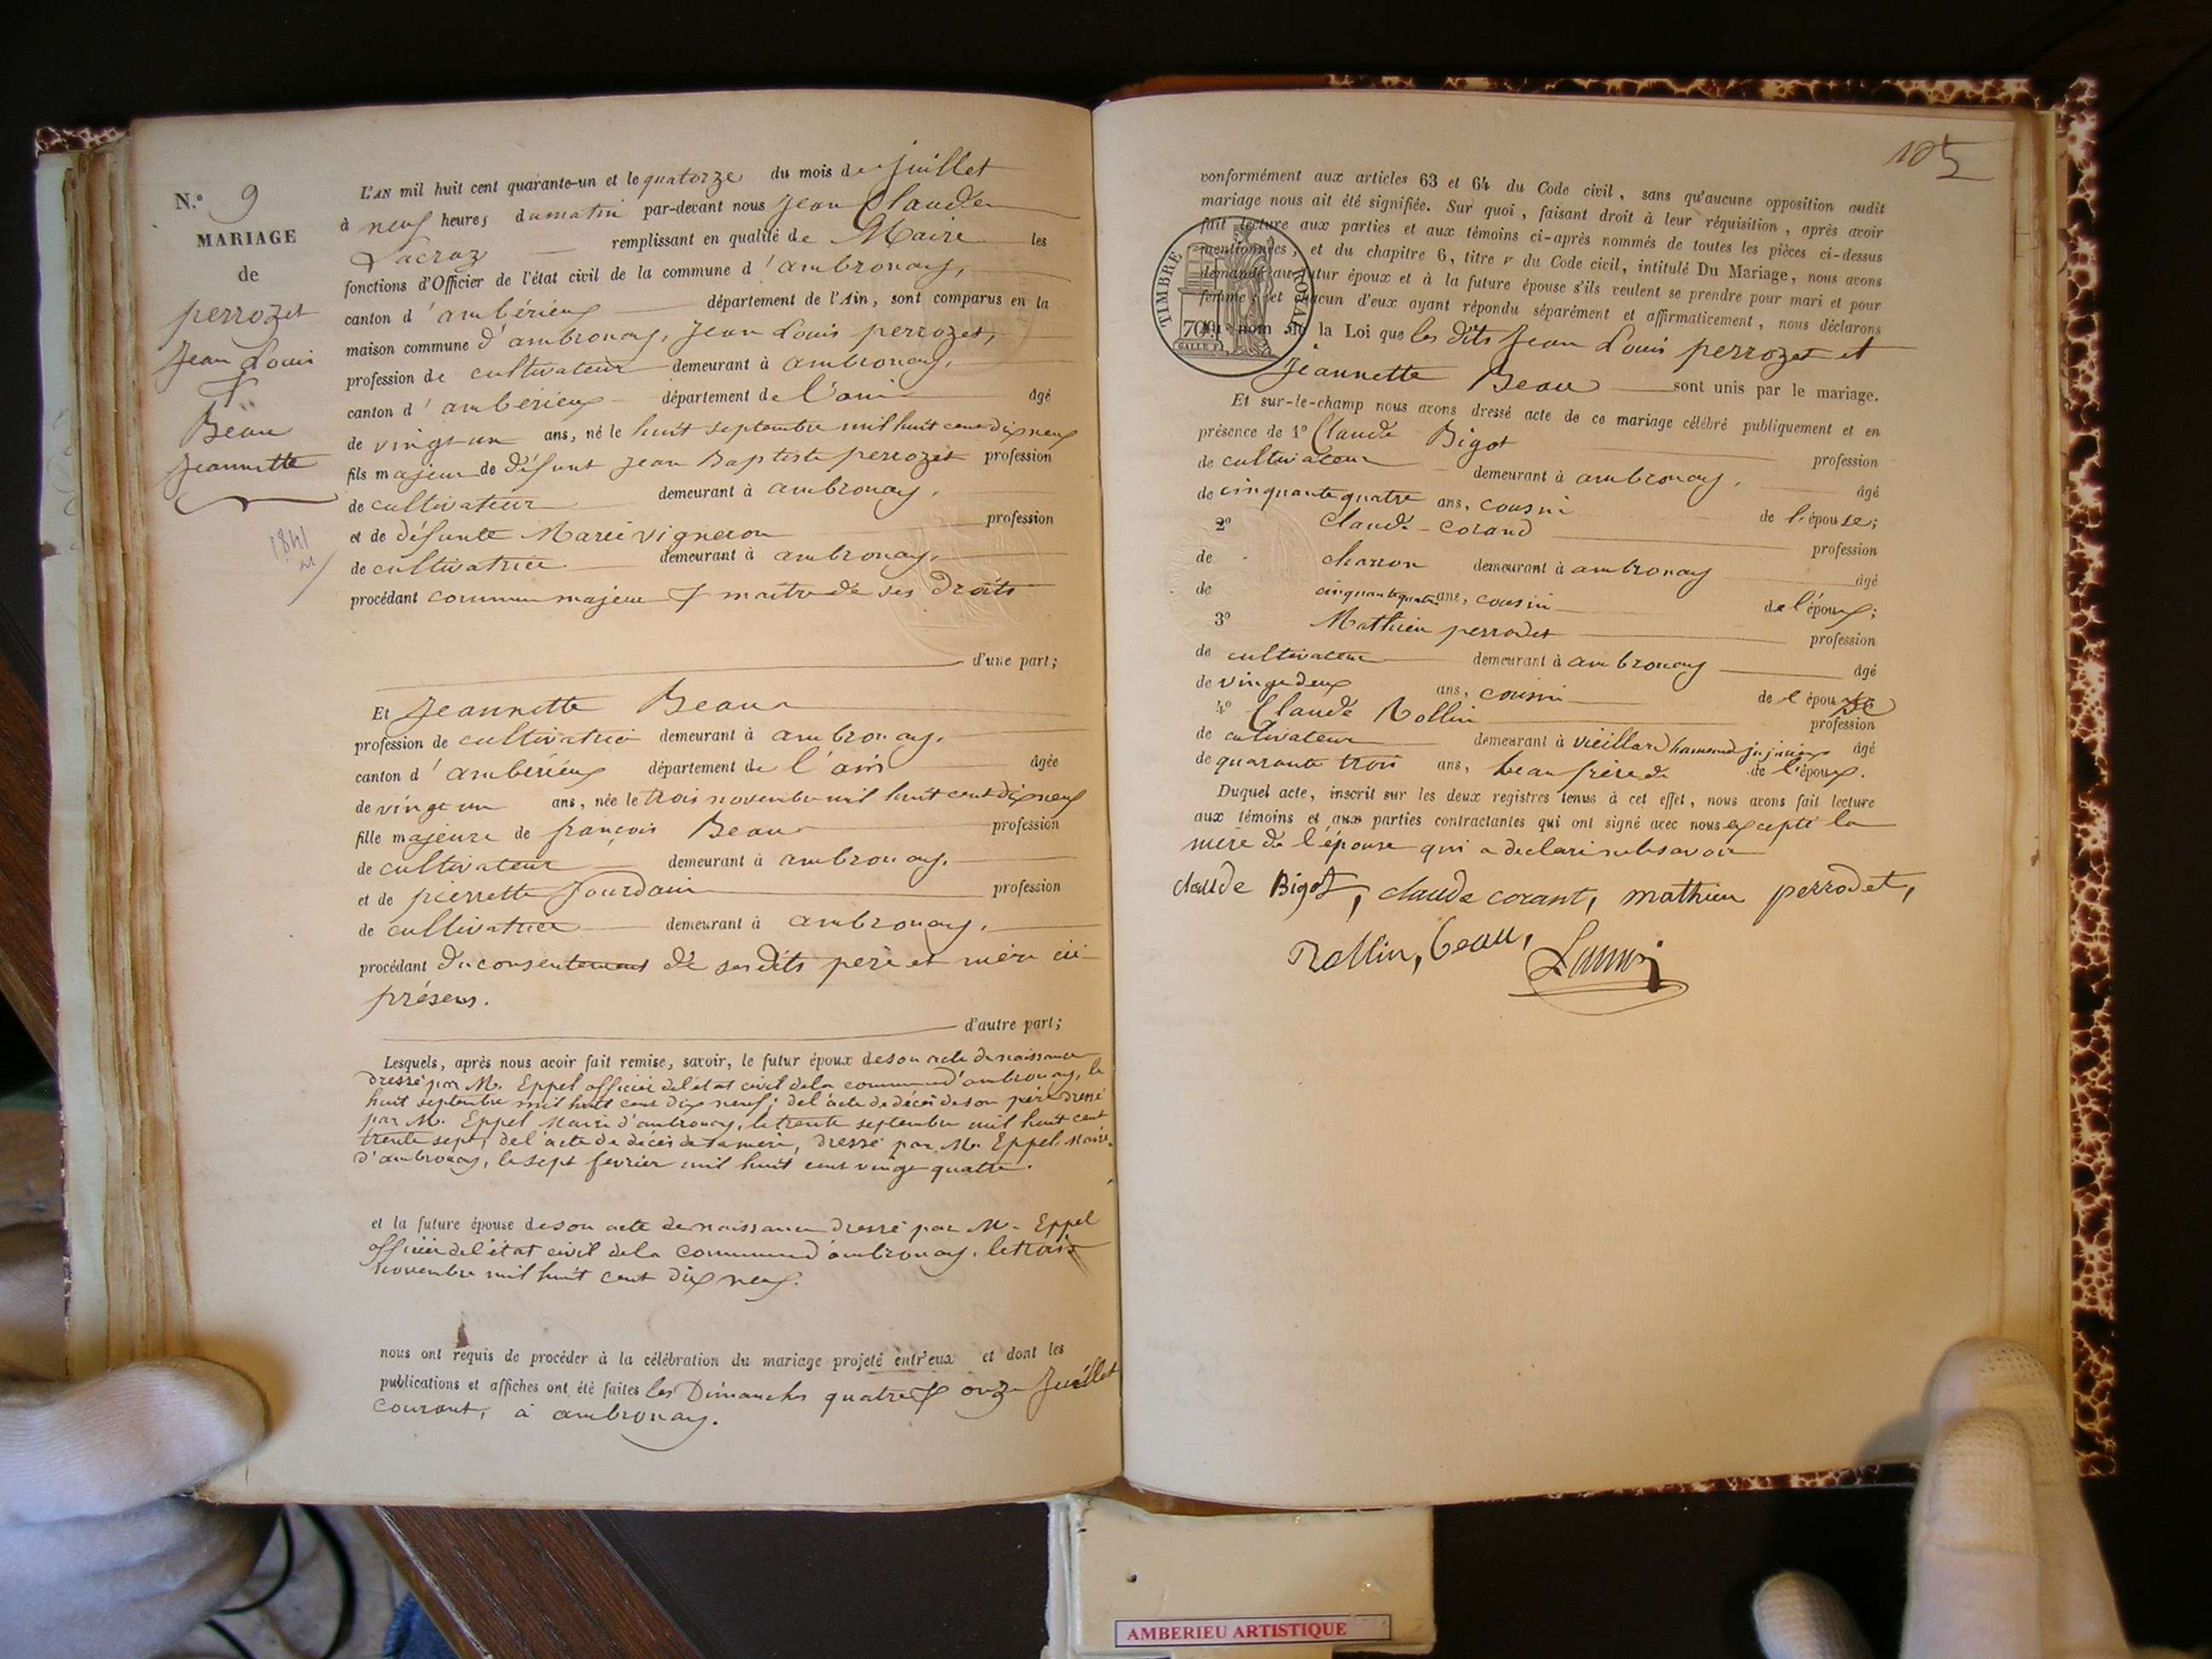 N.° 9
MARIAGE
de
perrozet
Jean Louis
&
Beau
Jeannette
1841
L'AN mil huit cent quarante-un et le quatorze du mois de Juillet
à neuf heures du matin par-devant nous Jean Claude
Lacroz remplissant en qualité de Maire les
fonctions d'Officier de l'état civil de la commune d'ambronay,
canton d'ambérieux département de l'Ain, sont comparus en la
maison commune d'ambronay, Jean Louis perrozet,
profession de cultivateur demeurant à ambronay,
canton d'ambérieux département de l'ain âgé
de vingt un ans, né le huit septembre mil huit cent dix neuf
fils majeur de défunt Jean Baptiste perrozet profession
de cultivateur demeurant à ambronay,
et de défunte Marie vigneron profession
de cultivatrice demeurant à ambronay,
procédant comme majeur & maitre de ses droits
d'une part;
Et Jeannette Beau
profession de cultivatrice demeurant à ambronay,
canton d'ambérieux département de l'ain âgée
de vingt un ans, née le trois novembre mil huit cent dix neuf
fille majeure de françois Beau profession
de cultivateur demeurant à ambronay,
et de pierrette Jourdain profession
de cultivatrice demeurant à ambronay,
procédant du consentement de ses dits père et mère ici
présens.
d'autre part;
Lesquels, après nous avoir fait remise, savoir, le futur époux de son acte de naissance
dressé par M. Eppel officier del'état civil dela commune d'ambronay, le
huit septembre mil huit cent dix neuf; del'acte de décès de son père dressé
par M. Eppel Maire d'ambronay, le trente septembre mil huit cent
trente sept; del'acte de décès de sa mère, dressé par M. Eppel Maire
d'ambronay, le sept fevrier mil huit cent vingt quatre.
et la future épouse de son acte de naissance dressé par M. Eppel
officier del'état civil dela commune d'ambronay, le trois
novembre mil huit cent dix neuf.
nous ont requis de procéder à la célébration du mariage projeté entr'eux et dont les
publications et affiches ont été faites les Dimanches quatre & onze Juillet
courant, à ambronay.
105
conformément aux articles 63 et 64 du Code civil, sans qu'aucune opposition audit
mariage nous ait été signifiée. Sur quoi, faisant droit à leur réquisition, après avoir
fait lecture aux parties et aux témoins ci-après nommés de toutes les pièces ci-dessus
mentionnées, et du chapitre 6, titre v du Code civil, intitulé Du Mariage, nous avons
demandé au futur époux et à la future épouse s'ils veulent se prendre pour mari et pour
femme; et chacun d'eux ayant répondu séparément et affirmativement, nous déclarons
au nom de la Loi que les dits Jean Louis perrozet et
Jeannette Beau sont unis par le mariage.
TIMBRE ROYAL
70
Et sur-le-champ nous avons dressé acte de ce mariage célébré publiquement et en
présence de 1° Claude Bigot profession
de cultivateur demeurant à ambronay, âgé
de cinquante quatre ans, cousin de l'épouse;
2° Claude Corand profession
de charron demeurant à ambronay âgé
de cinquante quatre ans, cousin de l'époux;
3° Mathieu perrodet profession
de cultivateur demeurant à ambronay âgé
de vingt deux ans, cousin de l'épouse
4° Claude Rollin profession
de cultivateur demeurant à vieillard hameau de jujurieux âgé
de quarante trois ans, beau frère de de l'époux.
Duquel acte, inscrit sur les deux registres tenus à cet effet, nous avons fait lecture
aux témoins et aux parties contractantes qui ont signé avec nous excepté la
mère de l'épouse qui a déclaré ne le savoir
claude Bigot, claude corant, mathieu perrodet,
Rollin, beau,
AMBERIEU ARTISTIQUE